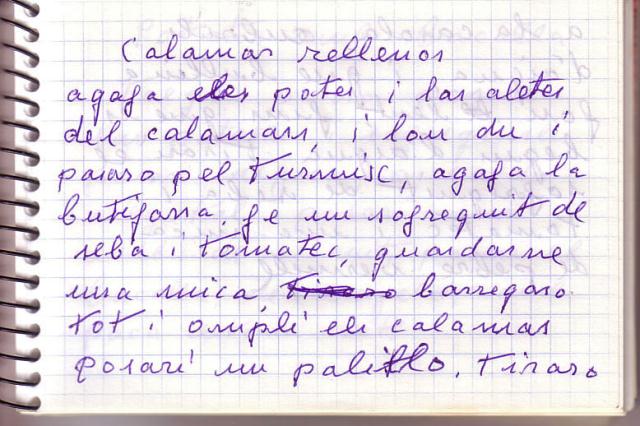 Calamars rellenos
agafa els potes i las aletes
del calamars, i lom du i
pasaro pel turmisc, agafa la
butifarra. fe un sofreguit de
seba i tomatec, guardarne
una mica, barregaro
tot i ompli els calamars
posari un palillo. Tiraro